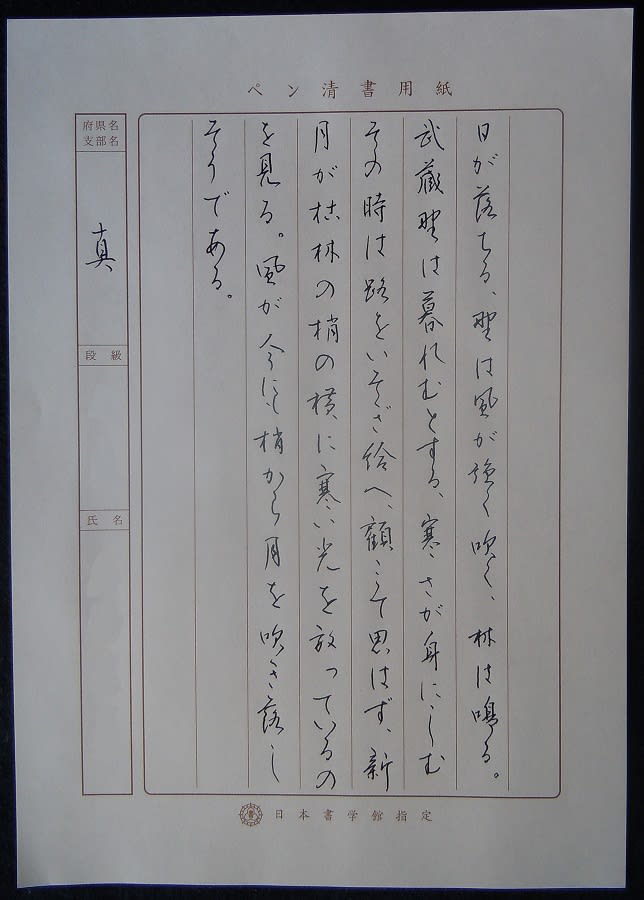 ペン清書用紙
日が落ちる、野は風が強く吹く、林は鳴る。
武蔵野は暮れむとする、寒さが身にしむ
その時は路をいそぎ給へ、顧みて思はず、新
月が枯林の梢の横に寒い光を放っているの
を見る。風が今にも梢から月を吹き落し
そうである。
府県名
支部名
真
段級
氏名
日本書学館指定